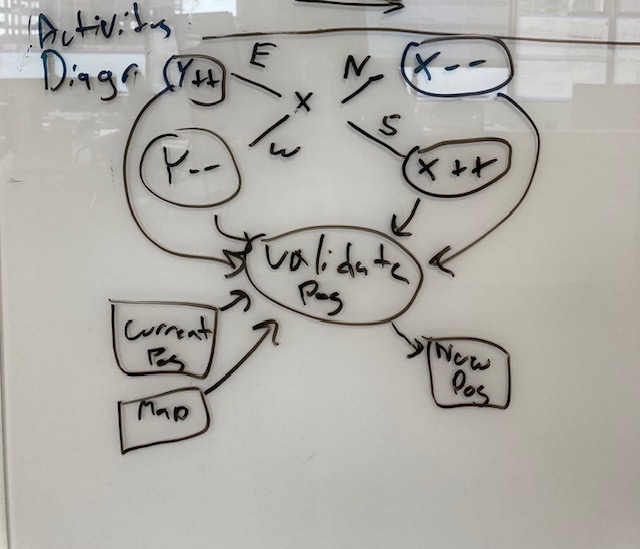 Activitys
Diagr
Y++
E
X
N
X--
Y--
W
S
X++
Validate
Pos
Current
Pos
Map
New
Pos